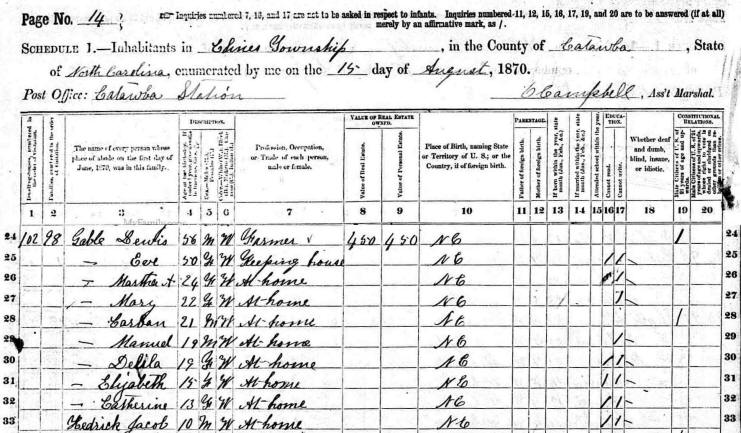 Page No. 14
Inquiries numbered 7, 16, and 17 are not to be asked in respect to infants. Inquiries numbered 11, 12, 15, 16, 17, 19, and 20 are to be answered (if at all) merely by an affirmative mark, as /.
SCHEDULE 1.—Inhabitants in Clines Township, in the County of Catawba, State
of North Carolina, enumerated by me on the 15 day of August, 1870.
Post Office: Catawba Station
Campbell, Ass't Marshal.
DESCRIPTION.
VALUE OF REAL ESTATE OWNED.
PARENTAGE.
EDUCATION.
CONSTITUTIONAL RELATIONS.
The name of every person whose place of abode on the first day of June, 1870, was in this family.
Profession, Occupation, or Trade of each person, male or female.
Value of Real Estate.
Value of Personal Estate.
Place of Birth, naming State or Territory of U. S.; or the Country, if of foreign birth.
Father of foreign birth.
Mother of foreign birth.
If born within the year, state month (Jan., Feb., &c.)
If married within the year, state month (Jan., Feb., &c.)
Attended school within the year.
Cannot read.
Cannot write.
Whether deaf and dumb, blind, insane, or idiotic.
1 2 3 4 5 6 7 8 9 10 11 12 13 14 15 16 17 18 19 20
24 102 98 Gable 56 M W Farmer 450 450 N C 1 24
25 — Eve 50 F W Keeping house N C 1 1 25
26 — Martha A 24 F W At home N C 1 1 26
27 — Mary 22 F W At home N C 1 27
28 — Carban 21 M W At home N C 1 28
29 — Manuel 19 M W At home N C 1 29
30 — Delila 19 F W At home N C 1 1 30
31 — Elizabeth 15 F W At home N C 1 1 31
32 — Catherine 13 F W At home N C 1 1 32
33 Hedrick Jacob 10 M W At home N C 1 1 33